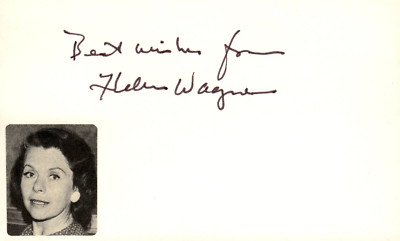 Best wishes from
Helen Wagner